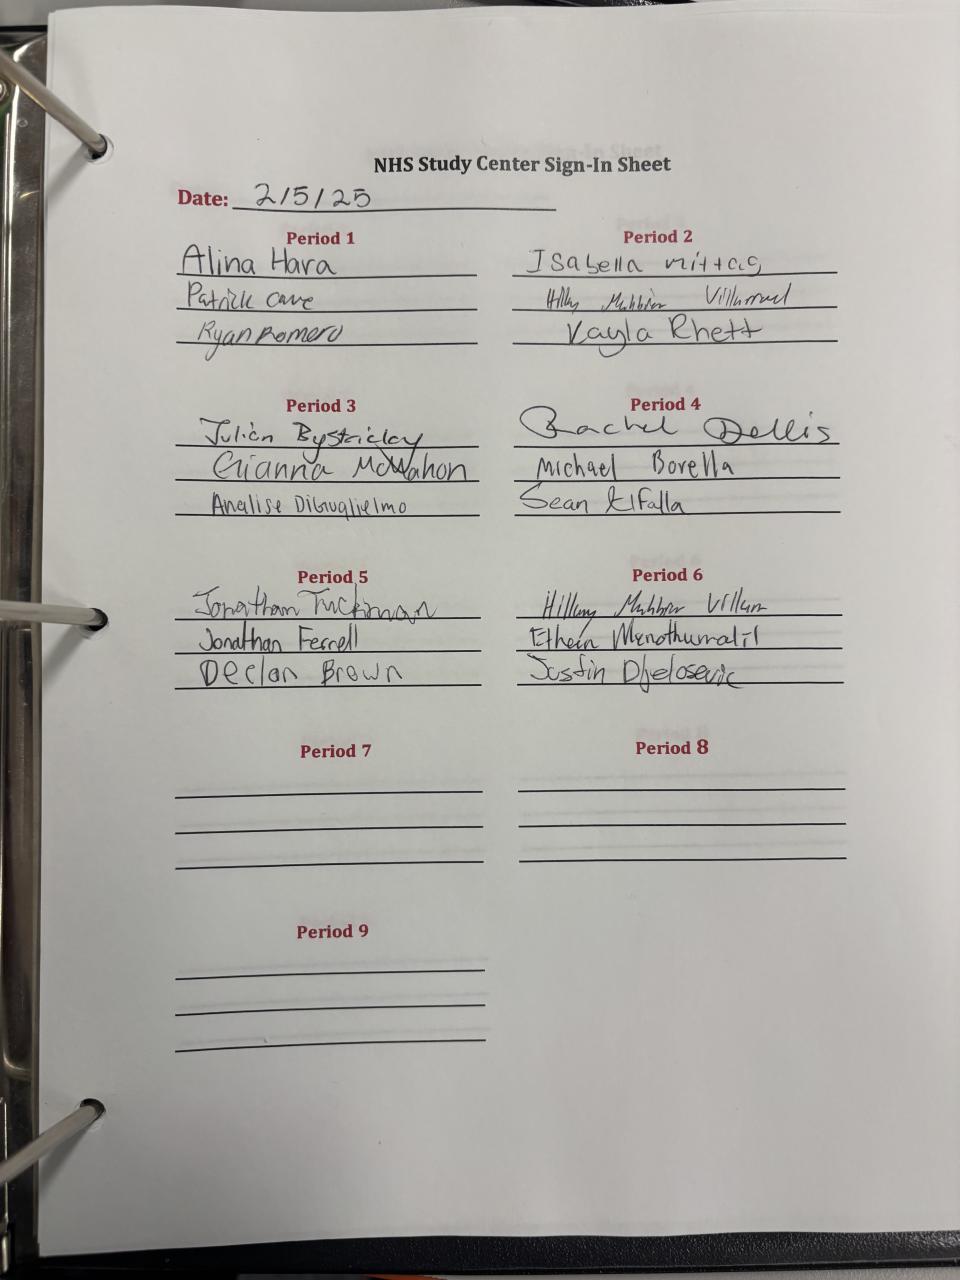 NHS Study Center Sign-In Sheet
Date: 2/5/25
Period 1
Alina Hara
Patrick Cave
Ryan Romero
Period 2
Isabella Mittag
Villarreal
Kayla Rhett
Period 3
Julian
Gianna McMahon
Analise DiGuglielmo
Period 4
Rachel Dellis
Michael Borella
Sean Elfalla
Period 5
Jonathan Tuckman
Jonathan Ferrell
Declan Brown
Period 6
Hillary
Justin Djelosevic
Period 7
Period 8
Period 9